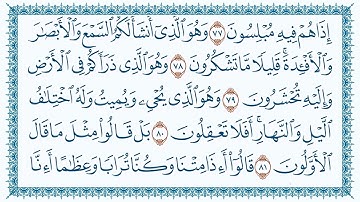 إِذَا هُمْ فِيهِ مُبْلِسُونَ ٧٧ وَهُوَ ٱلَّذِىٓ أَنشَأَ لَكُمُ ٱلسَّمْعَ وَٱلْأَبْصَـٰرَ
وَٱلْأَفْـِٔدَةَ ۚ قَلِيلًا مَّا تَشْكُرُونَ ٧٨ وَهُوَ ٱلَّذِى ذَرَأَكُمْ فِى ٱلْأَرْضِ
وَإِلَيْهِ تُحْشَرُونَ ٧٩ وَهُوَ ٱلَّذِى يُحْىِۦ وَيُمِيتُ وَلَهُ ٱخْتِلَـٰفُ
ٱلَّيْلِ وَٱلنَّهَارِ ۚ أَفَلَا تَعْقِلُونَ ٨٠ بَلْ قَالُوا۟ مِثْلَ مَا قَالَ
ٱلْأَوَّلُونَ ٨١ قَالُوٓا۟ أَءِذَا مِتْنَا وَكُنَّا تُرَابًا وَعِظَـٰمًا أَءِنَّا